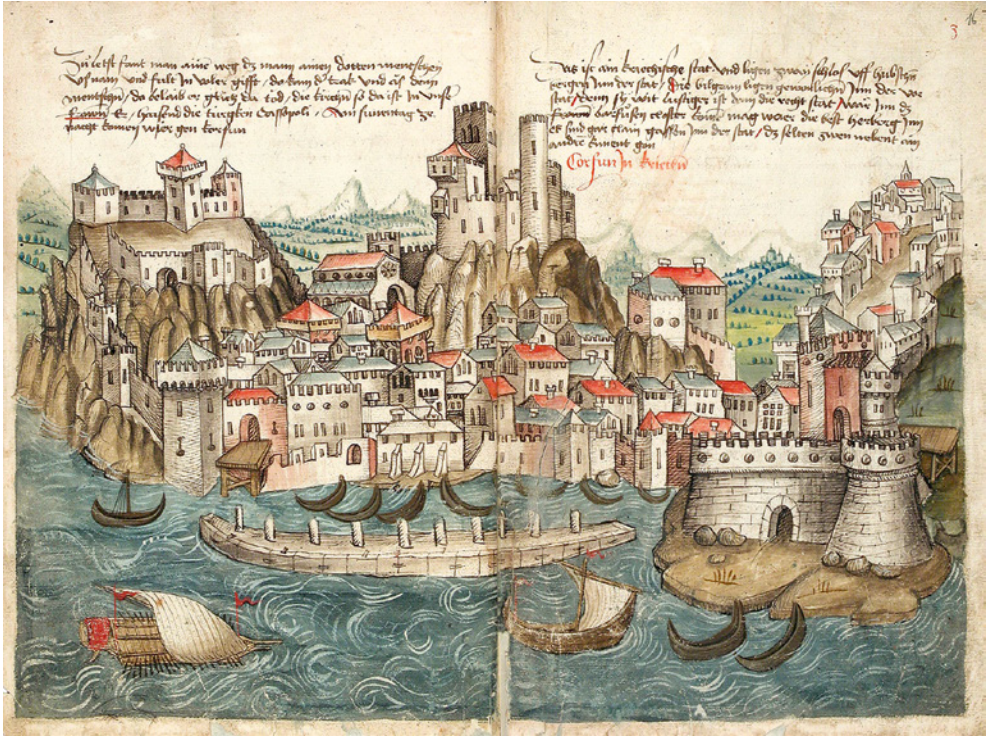 Zu letst fant man ainē weg dz mann ainen dotten mentschen
vsnam und fult In voler gifft / do kam der trak und as den
mentschen / do belaib er glich da tod / die kirchen so da ist In vnser
frowen Er / haissend die turgken Cassopoli / Am sunentag ze
nacht komen wier gen Corfun
Das ist ain kriechische stat Und ligen zwai schlos vff
bergen Inn der stat / Die bilgram ligen gewonlichen Inn der vor
stat / denn sy wit lustiger ist denn die recht stat Inn dz
barfussen closter mag die best herberg
Es sind gar clain gassen Inn der stat / dz selten zwen nebent ain
andren gon
Corfun In kriechen
3
16